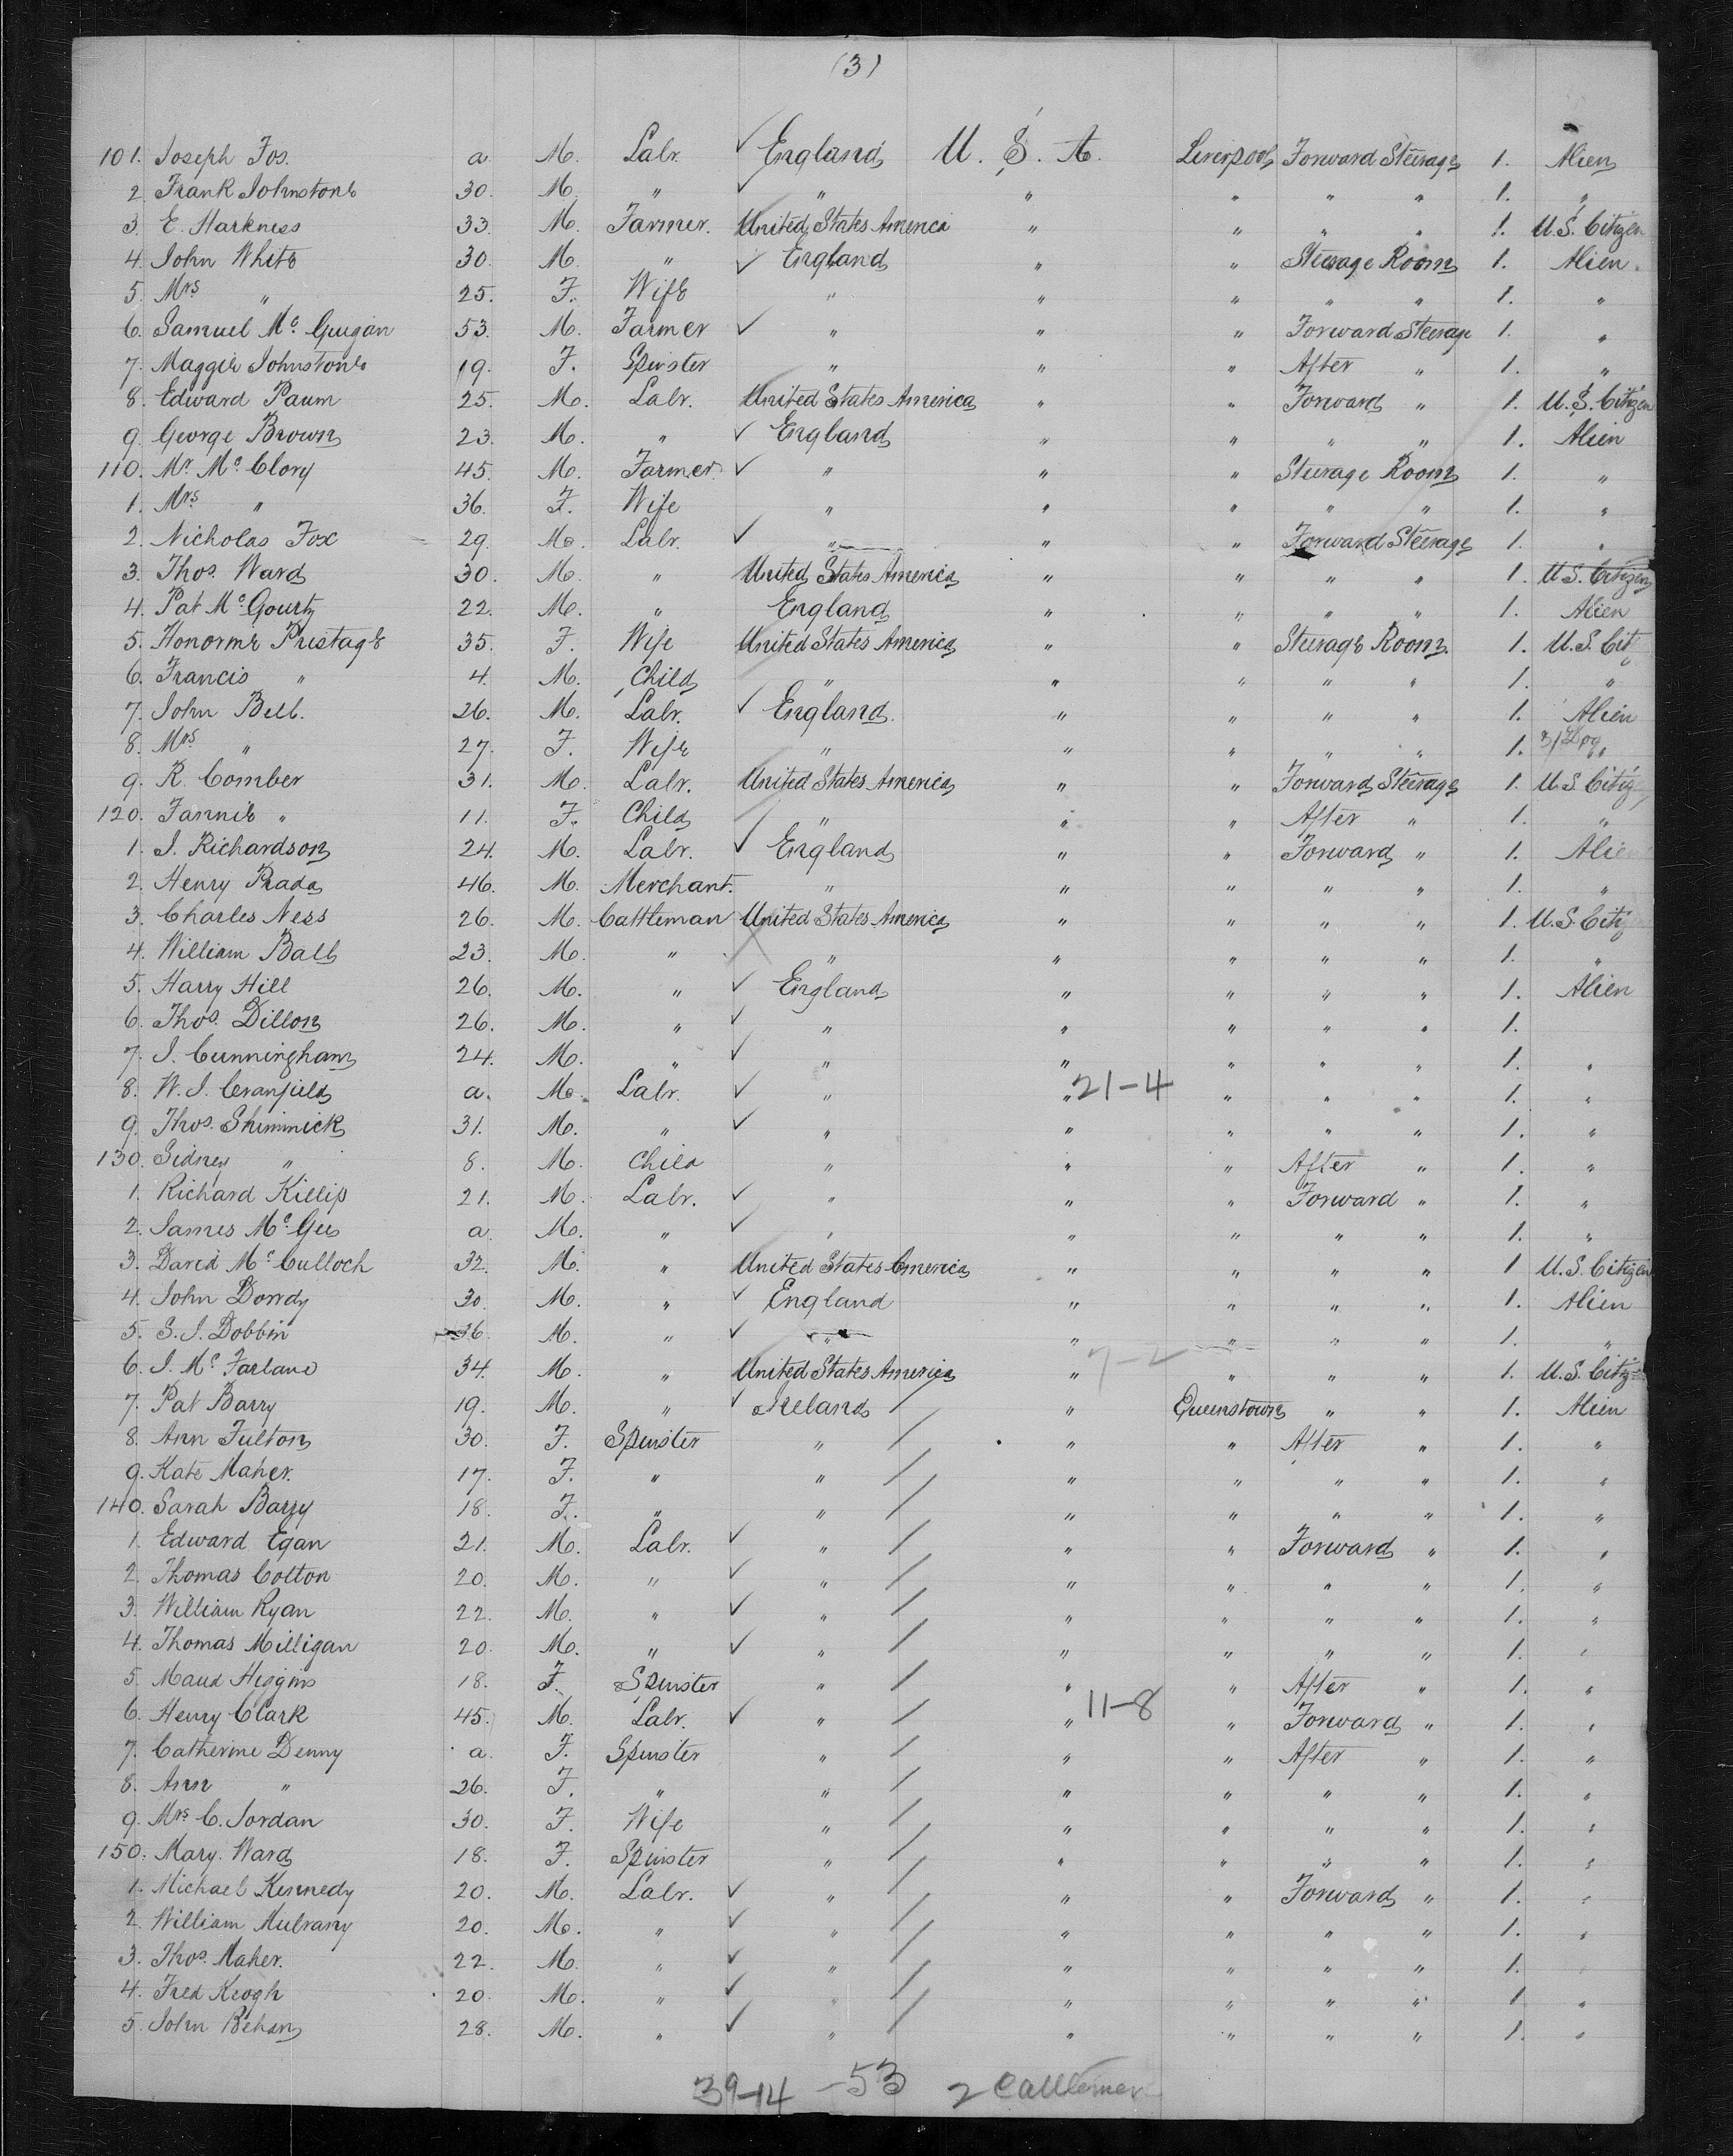 (3)
101. Joseph Fos. a. M. Labr. ✓ England U. S. A. Liverpool Forward Steerage 1. Alien
2. Frank Johnstone 30. M. " ✓ " " " " " 1. "
3. E. Harkness 33. M. Farmer. United States America " " " " 1. U.S. Citizen
4. John White 30. M. " ✓ England " " Steerage Room 1. Alien.
5. Mrs " 25. F. Wife " " " " " 1. "
6. Samuel Mc Guigan 53. M. Farmer ✓ " " " Forward Steerage 1. "
7. Maggie Johnstone 19. F. Spinster " " " After " 1. "
8. Edward Paum 25. M. Labr. United States America " " Forward " 1. U.S. Citizen
9. George Brown 23. M. " ✓ England " " " " 1. Alien
110. Mr. Mc Clory 45. M. Farmer. ✓ " " " Steerage Room 1. "
1. Mrs " 36. F. Wife " " " " " 1. "
2. Nicholas Fox 29. M. Labr. ✓ " " " Forward Steerage 1. "
3. Thos. Ward 30. M. " United States America " " " " 1. U.S. Citizen
4. Pat Mc Gourty 22. M. " England " " " " 1. Alien
5. Honorme Pristage 35. F. Wife United States America " " Steerage Room. 1. U.S. Cit
6. Francis " 4. M. Child " " " " " 1. "
7. John Bell. 26. M. Labr. ✓ England. " " " " 1. Alien
8. Mrs " 27. F. Wife " " " " " 1. "
9. R. Comber 31. M. Labr. United States America " " Forward Steerage 1. U.S. Citiz
120. Fannie " 11. F. Child " " " After " 1. "
1. J. Richardson 24. M. Labr. ✓ England " " Forward " 1. Alien
2. Henry Prada 46. M. Merchant. " " " " " 1. "
3. Charles Ness 26. M. Cattleman United States America " " " " 1. U.S. Citiz
4. William Ball 23. M. " " " " " " 1. "
5. Harry Hill 26. M. " ✓ England " " " " 1. Alien
6. Thos. Dillon 26. M. " ✓ " " " " " 1.
7. J. Cunningham 24. M. " ✓ " " " " " 1. "
8. W. J. Cranfield a. M. Labr. ✓ " " 21-4 " " " 1. "
9. Thos. Shimmick 31. M. " ✓ " " " " " 1. "
130. Sidney " 8. M. Child " " " After " 1. "
1. Richard Killip 21. M. Labr. ✓ " " " Forward " 1. "
2. James Mc Gee a. M. " ✓ " " " " " 1. "
3. David Mc Culloch 32. M. " United States America " " " " 1 U.S. Citizen
4. John Dowdy 30 M. " ✓ England " " " " 1. Alien
5. S. J. Dobbin 36. M. " ✓ " " " " " 1. "
6. J. Mc Farland 34. M. " United States America " 7-2 " " " 1. U.S. Citiz
7. Pat Barry 19. M. " ✓ Ireland " Queenstown " " 1. Alien
8. Ann Fulton 30. F. Spinster " " " After " 1. "
9. Kate Maher. 17. F. " " " " " " 1. "
140. Sarah Barry 18. F. " " " " " " 1. "
1. Edward Egan 21. M. Labr. ✓ " " " Forward " 1. "
2. Thomas Cotton 20. M. " ✓ " " " " " 1. "
3. William Ryan 22. M. " ✓ " " " " " 1. "
4. Thomas Milligan 20. M. " ✓ " " " " " 1. "
5. Maud Higgins 18. F. Spinster " " " After " 1. "
6. Henry Clark 45. M. Labr. ✓ " " 11-8 " Forward " 1. "
7. Catherine Denny a. F. Spinster " " " After " 1. "
8. Ann " 26. F. " " " " " " 1. "
9. Mrs C. Jordan 30. F. Wife " " " " " 1. "
150. Mary Ward 18. F. Spinster " " " " " 1. "
1. Michael Kennedy 20. M. Labr. ✓ " " " Forward " 1. "
2. William Mulrany 20. M. " ✓ " " " " " 1. "
3. Thos. Maher. 22. M. " ✓ " " " " " 1. "
4. Fred Keogh 20. M. " ✓ " " " " " 1 "
5. John Behan 28. M. " ✓ " " " " " 1. "
39-14 -53 2 Cattlemen